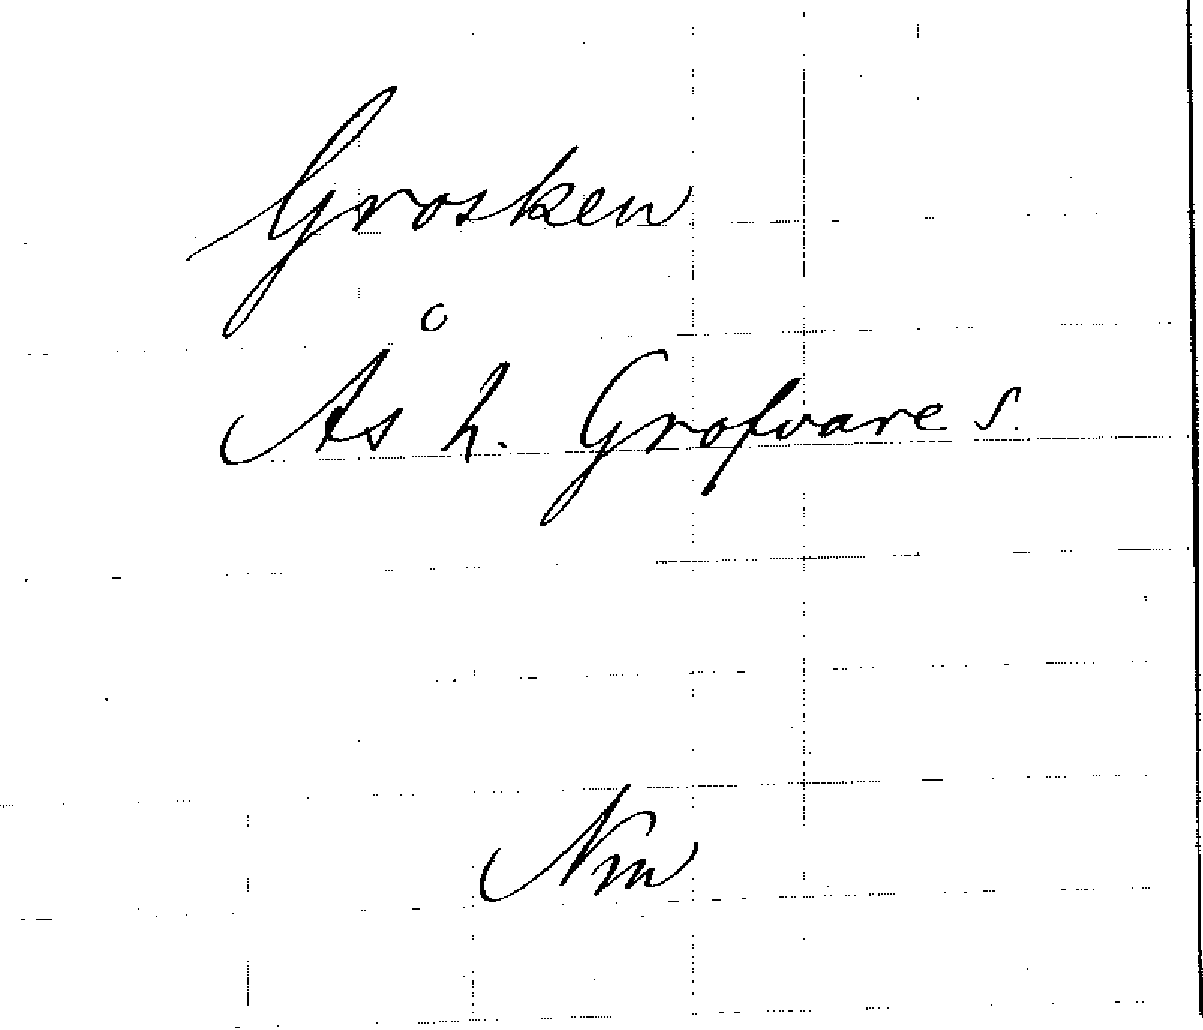 Grosken
Ås h. Grofvare s.
Nm